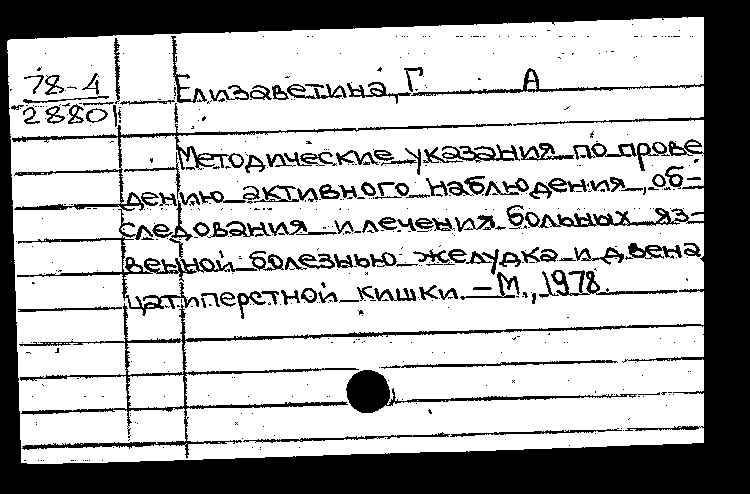 78-4
2880
Елизаветина, Г А
Методические указания по прове
дению активного наблюдения, об-
следования и лечения больных яз-
венной болезнью желудка и двена
цатиперстной кишки. – М., 1978.